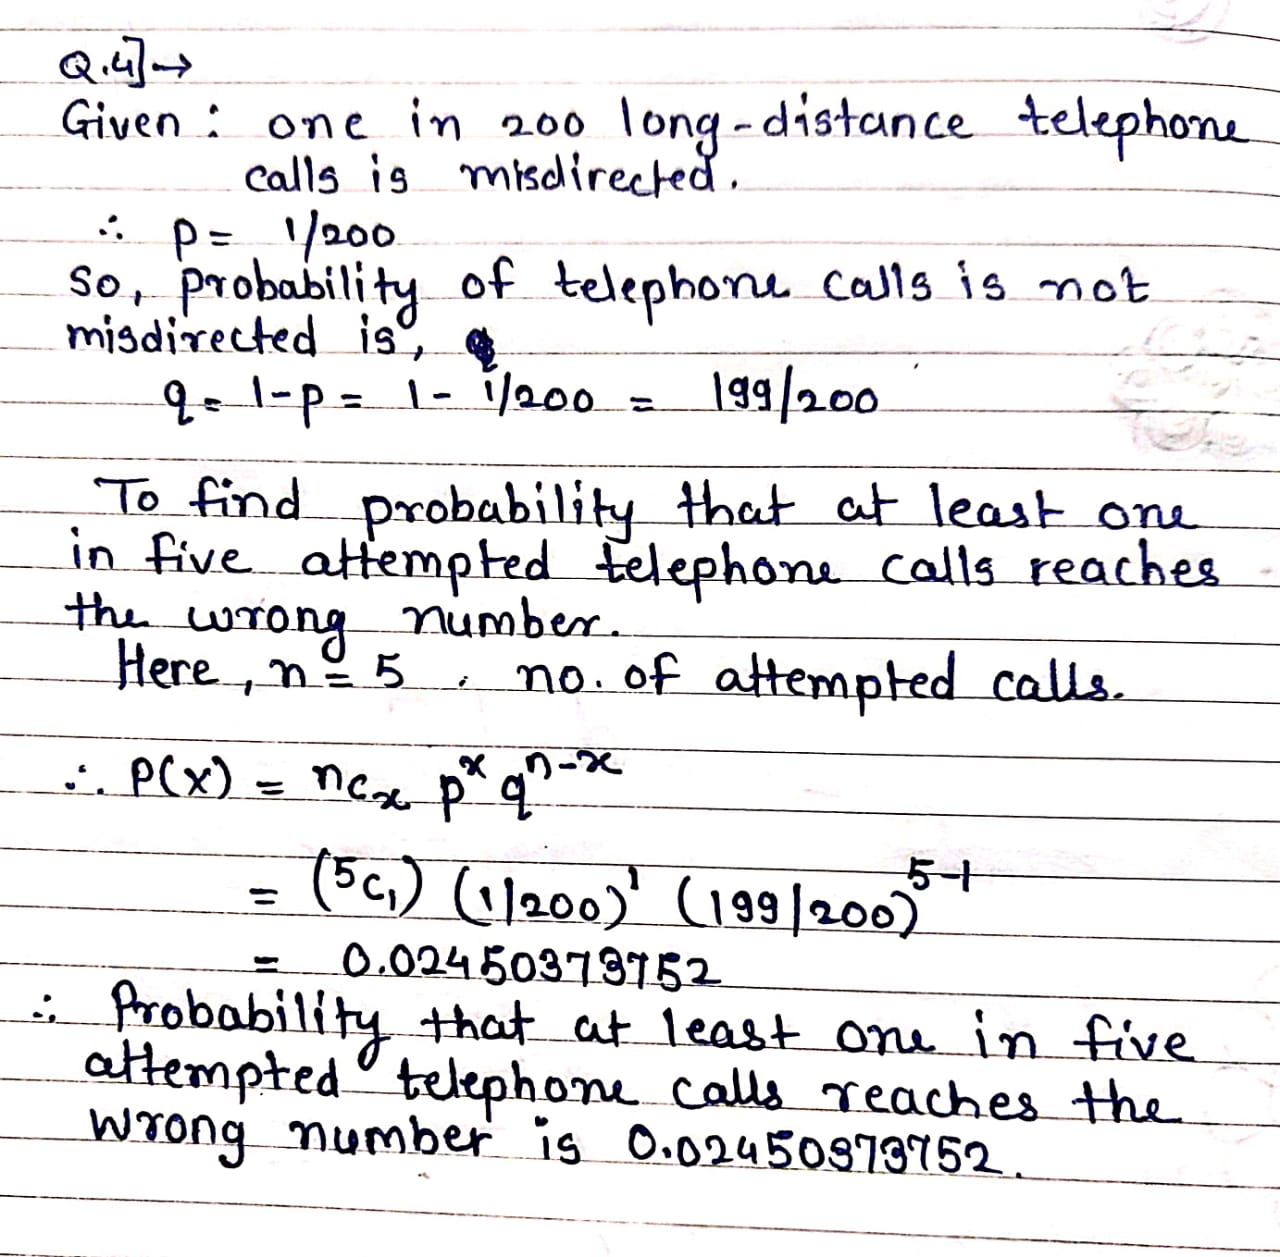 Q.4]→
Given : one in 200 long-distance telephone
calls is misdirected.
∴ p = 1/200
so, probability of telephone calls is not
misdirected is,
q = 1-p = 1 - 1/200 = 199/200
To find probability that at least one
in five attempted telephone calls reaches
the wrong number.
Here, n = 5 . no. of attempted calls.
∴ P(x) = nCx p^x q^n-x
= (5C1) (1/200)^1 (199/200)^5-1
= 0.02450373752
∴ Probability that at least one in five
attempted telephone calls reaches the
wrong number is 0.02450373752.